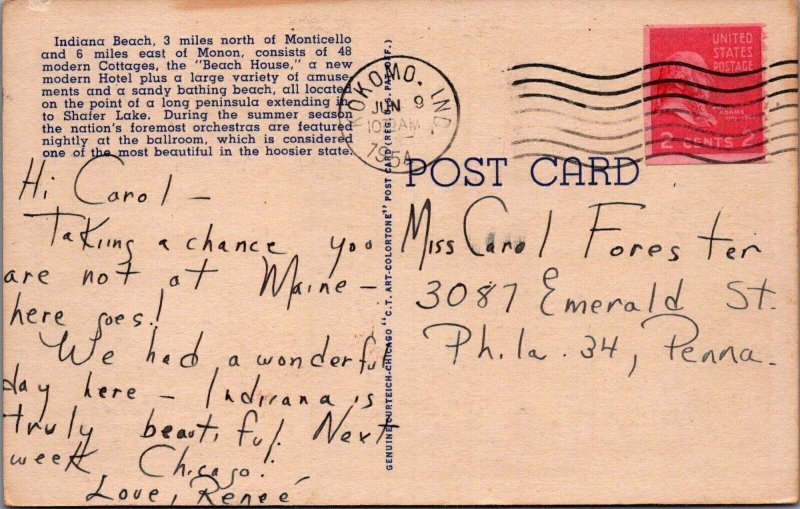 Indiana Beach, 3 miles north of Monticello
and 6 miles east of Monon, consists of 48
modern Cottages, the "Beach House," a new
modern Hotel plus a large variety of amuse-
ments and a sandy bathing beach, all located
on the point of a long peninsula extending in
to Shafer Lake. During the summer season
the nation's foremost orchestras are featured
nightly at the ballroom, which is considered
one of the most beautiful in the hoosier state.
KOKOMO, IND.
JUN 9
AM
1954
UNITED
STATES
POSTAGE
ADAMS
2 CENTS 2
POST CARD
GENUINE CURTEICH-CHICAGO "C.T. ART-COLORTONE" POST CARD (REG. U.S. PAT. OFF.)
Hi Carol —
Taking a chance you
are not at Maine —
here goes!
We had a wonderful
day here — Indiana is
truly beautiful. Next
week, Chicago!
Love, Reneé
Miss Carol Forester
3087 Emerald St.
Phila. 34, Penna.